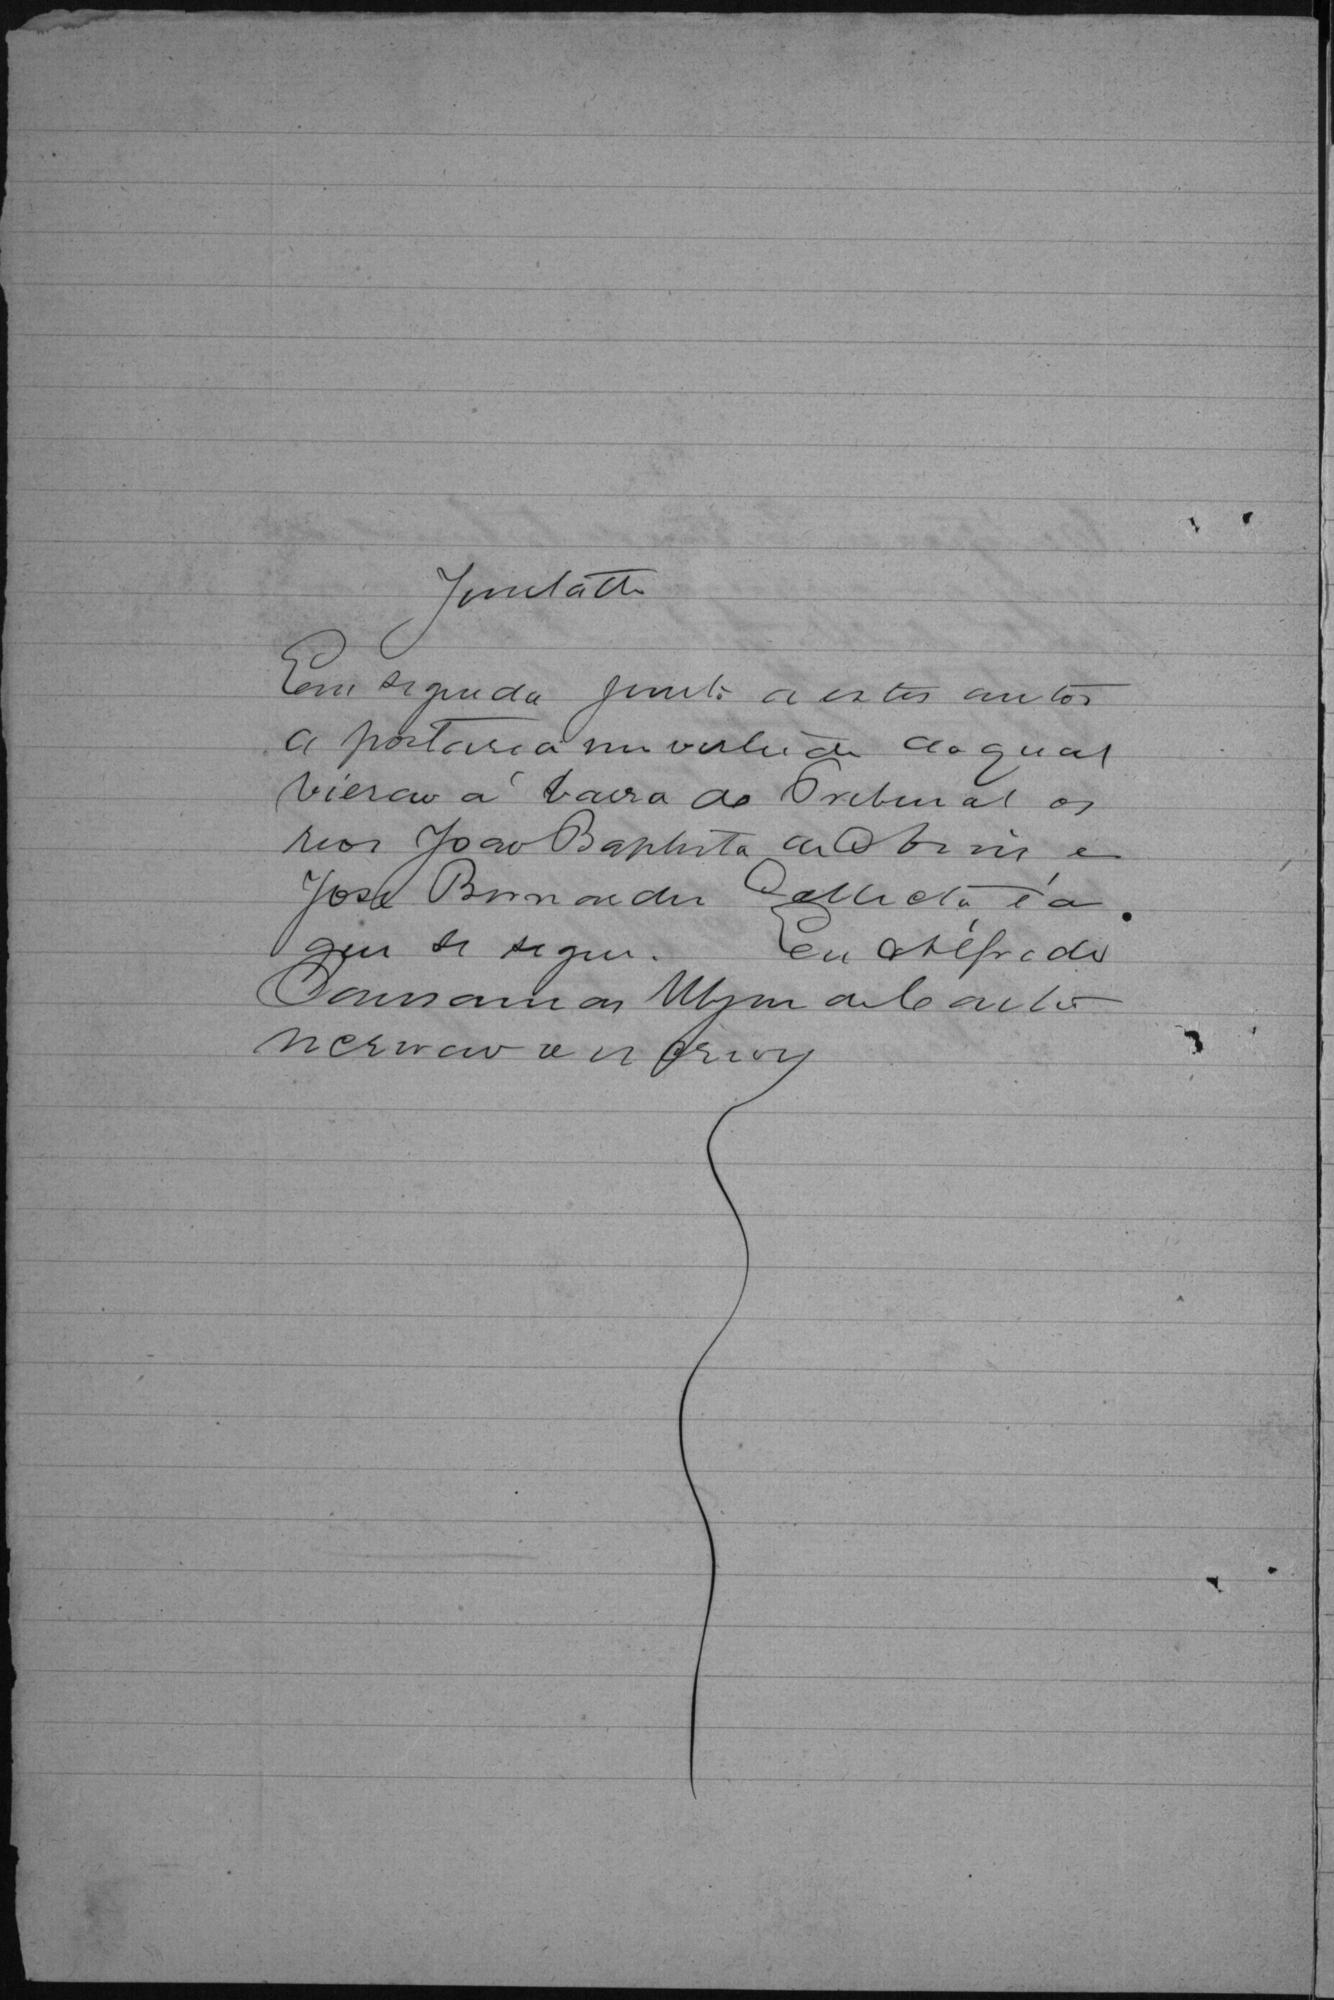 Juntada
Em seguida junto a estes autos
a portaria em virtude da qual
vierão á barra do Tribunal os
reos João Baptista de e
José Bernardes é a
que se segue. Eu Alfredo
de Castro
escrivão o escrevy